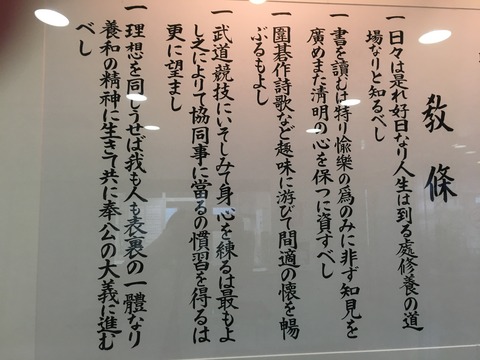 教條
一 日々は是れ好日なり人生は到る處修養の道
場なりと知るべし
一 書を讀むは特り愉樂の爲のみに非ず知見を
廣めまた淸明の心を保つに資すべし
一 圍碁作詩歌など趣味に游びて間適の懷を暢
ぶるもよし
一 武道競技にいそしみて身心を練るは最もよ
し之によりて協同事に當るの慣習を得るは
更に望まし
一 理想を同じうせば我も人も表裏の一體なり
養和の精神に生きて共に奉公の大義に進む
べし